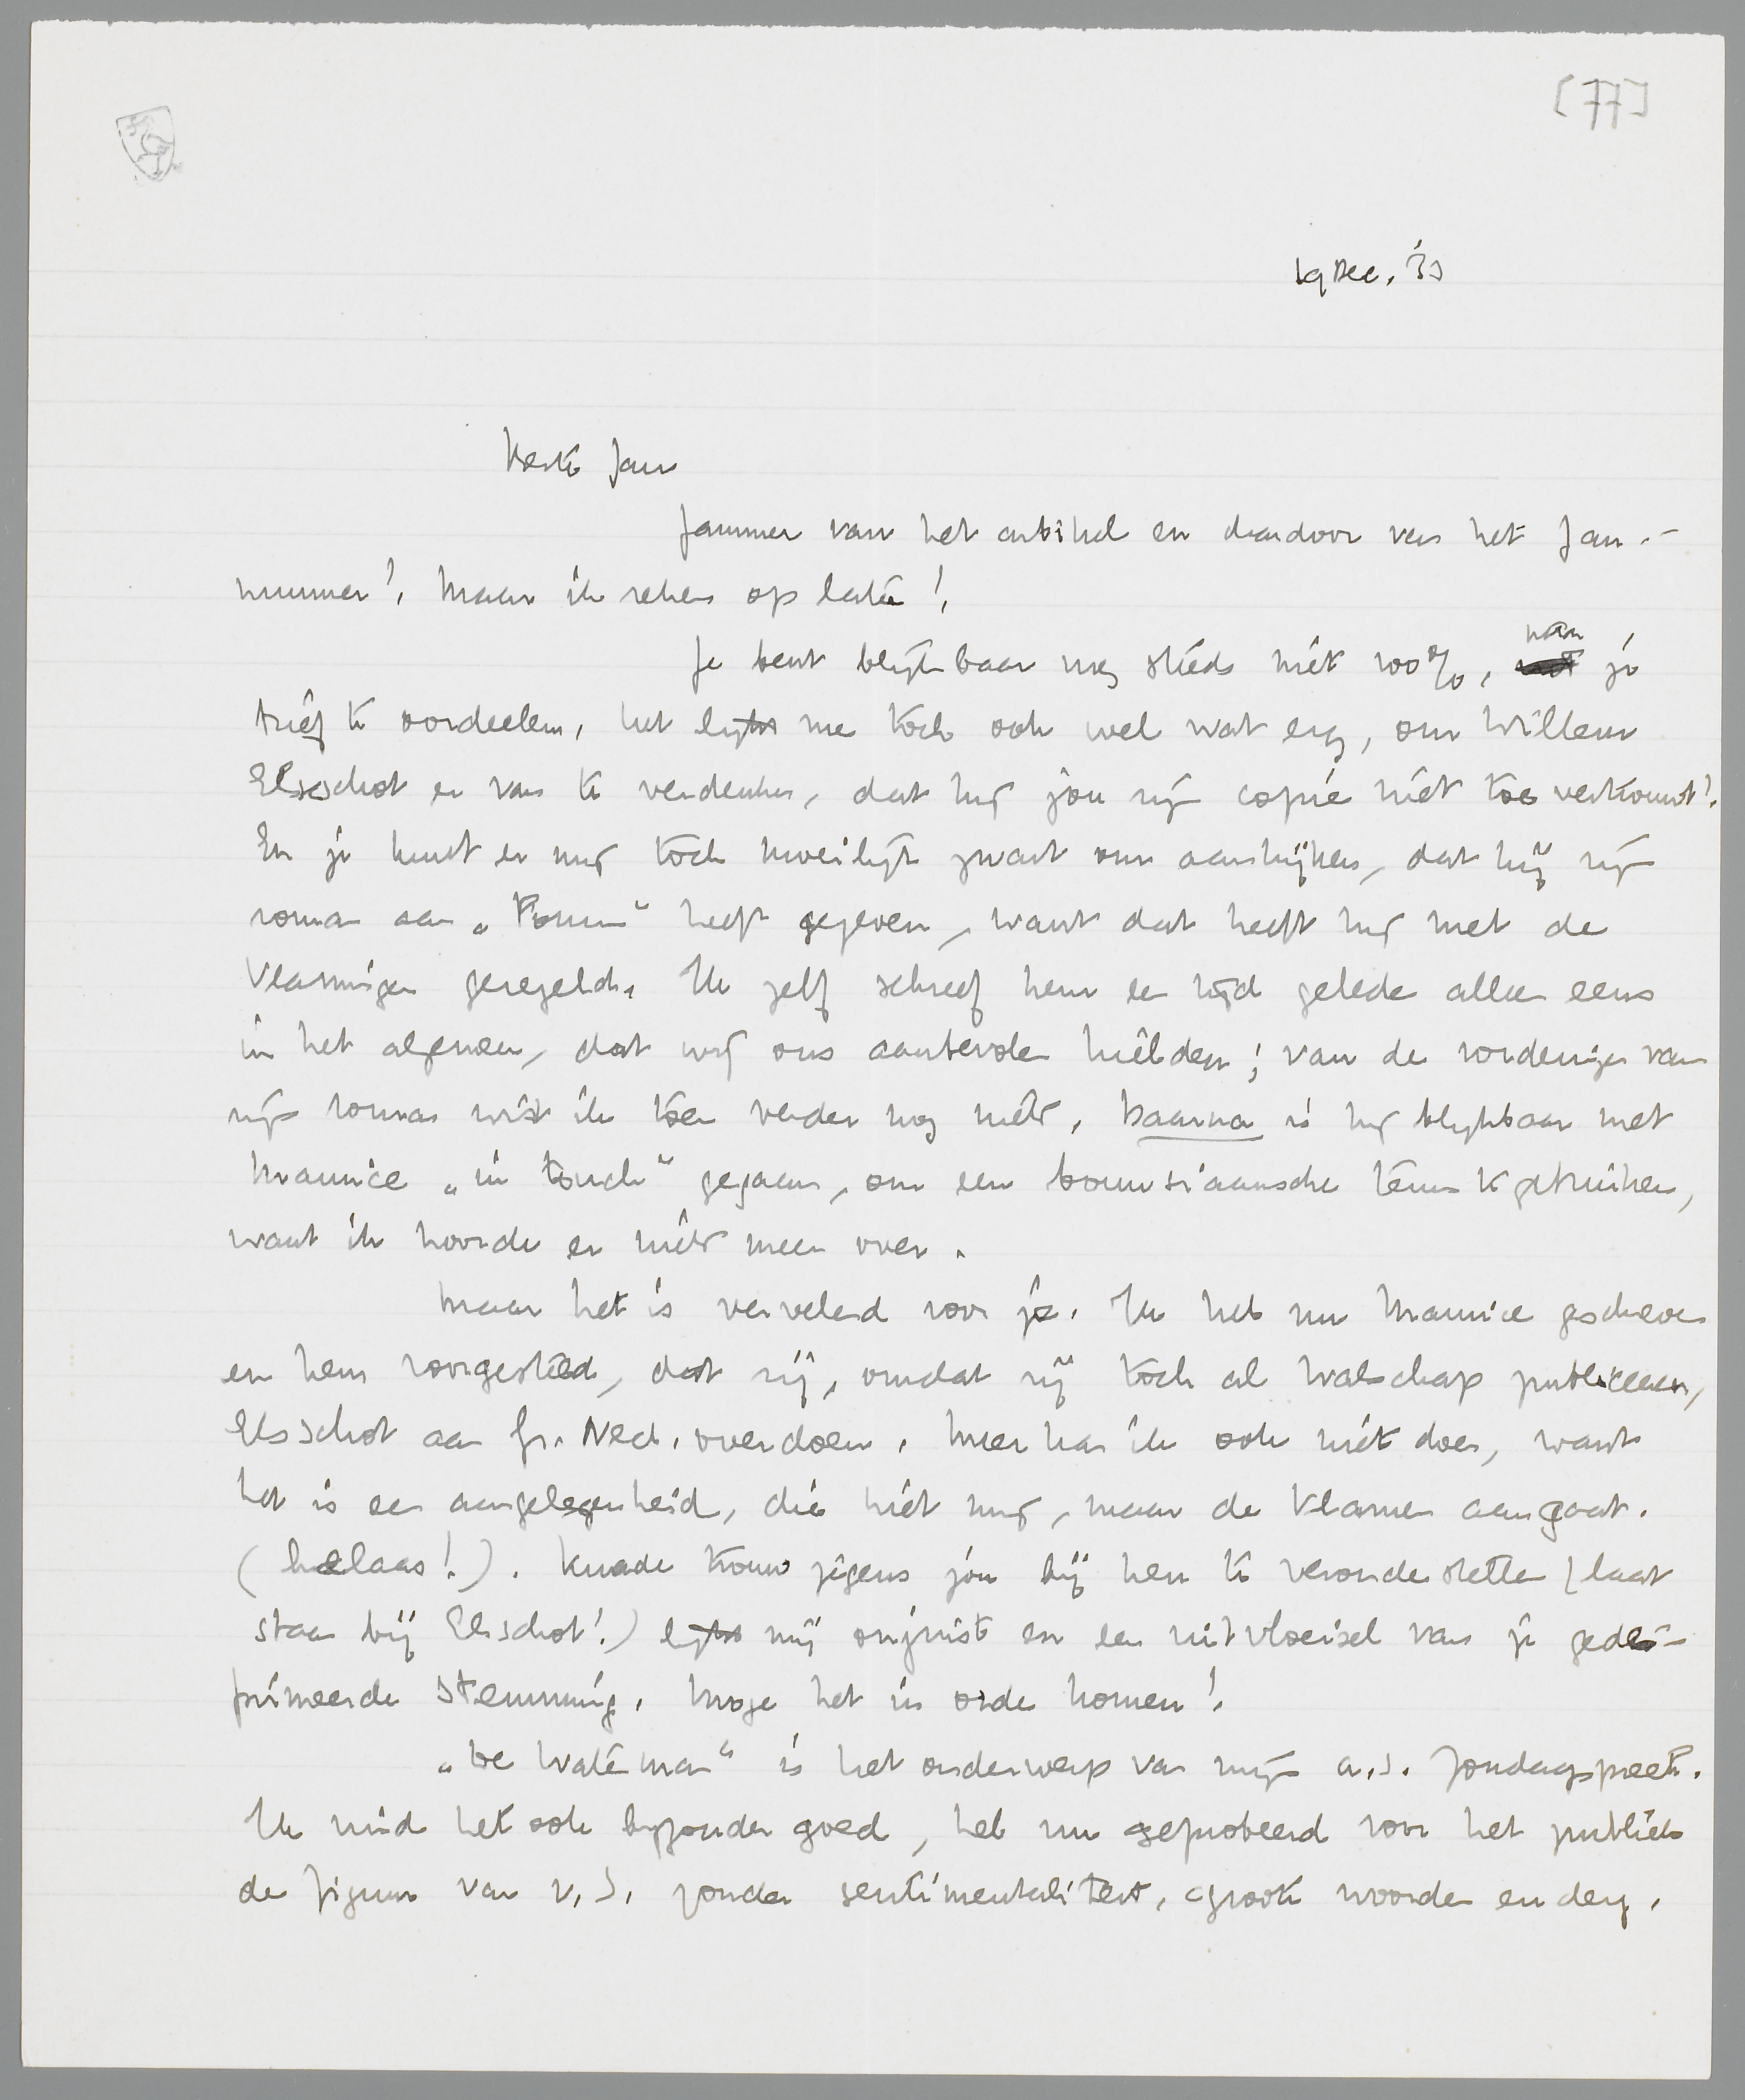 [77]
19 Dec. '33
Beste Jan
Jammer van het artikel en daardoor van het Jan.-
nummer! Maar ik reken op later!
Je bent blijkbaar nog steeds niet 100%, naar je
brief te oordeelen, het lijkt me toch ook wel wat erg, om Willem
Elsschot er van te verdenken, dat hij jou zijn copie niet toevertrouwt!
En je kunt er mij toch moeilijk zwart om aankijken, dat hij zijn
roman aan „Forum" heeft gegeven, want dat heeft hij met de
Vlamingen geregeld. Ik zelf schreef hem een tijd geleden alleen eens
in het algemeen, dat wij ons aanbevolen hielden; van de vorderingen van
zijn roman wist ik toen verder nog niets. Daarna is hij blijkbaar met
Maurice „in touch" gegaan, om een bouwsiaansche term te gebruiken,
want ik hoorde er niets meer over.
Maar het is vervelend voor je. Ik heb nu Maurice geschreven
en hem voorgesteld, dat zij, omdat zij toch al Walschap publiceeren,
Elsschot aan Gr. Ned. overdoen. Meer kan ik ook niet doen, want
het is een aangelegenheid, die niet mij, maar de Vlamen aangaat.
(helaas!). Kwade trouw jegens jou bij hen te veronderstellen (laat
staan bij Elsschot!) lijkt mij onjuist en een uitvloeisel van je gede-
primeerde stemming. Moge het in orde komen!
„De Waterman" is het onderwerp van mijn a.s. Zondagspreek.
Ik vind het ook bijzonder goed, heb nu geprobeerd voor het publiek
de figuur van v. S. zonder sentimentaliteit, groote woorden en derg.